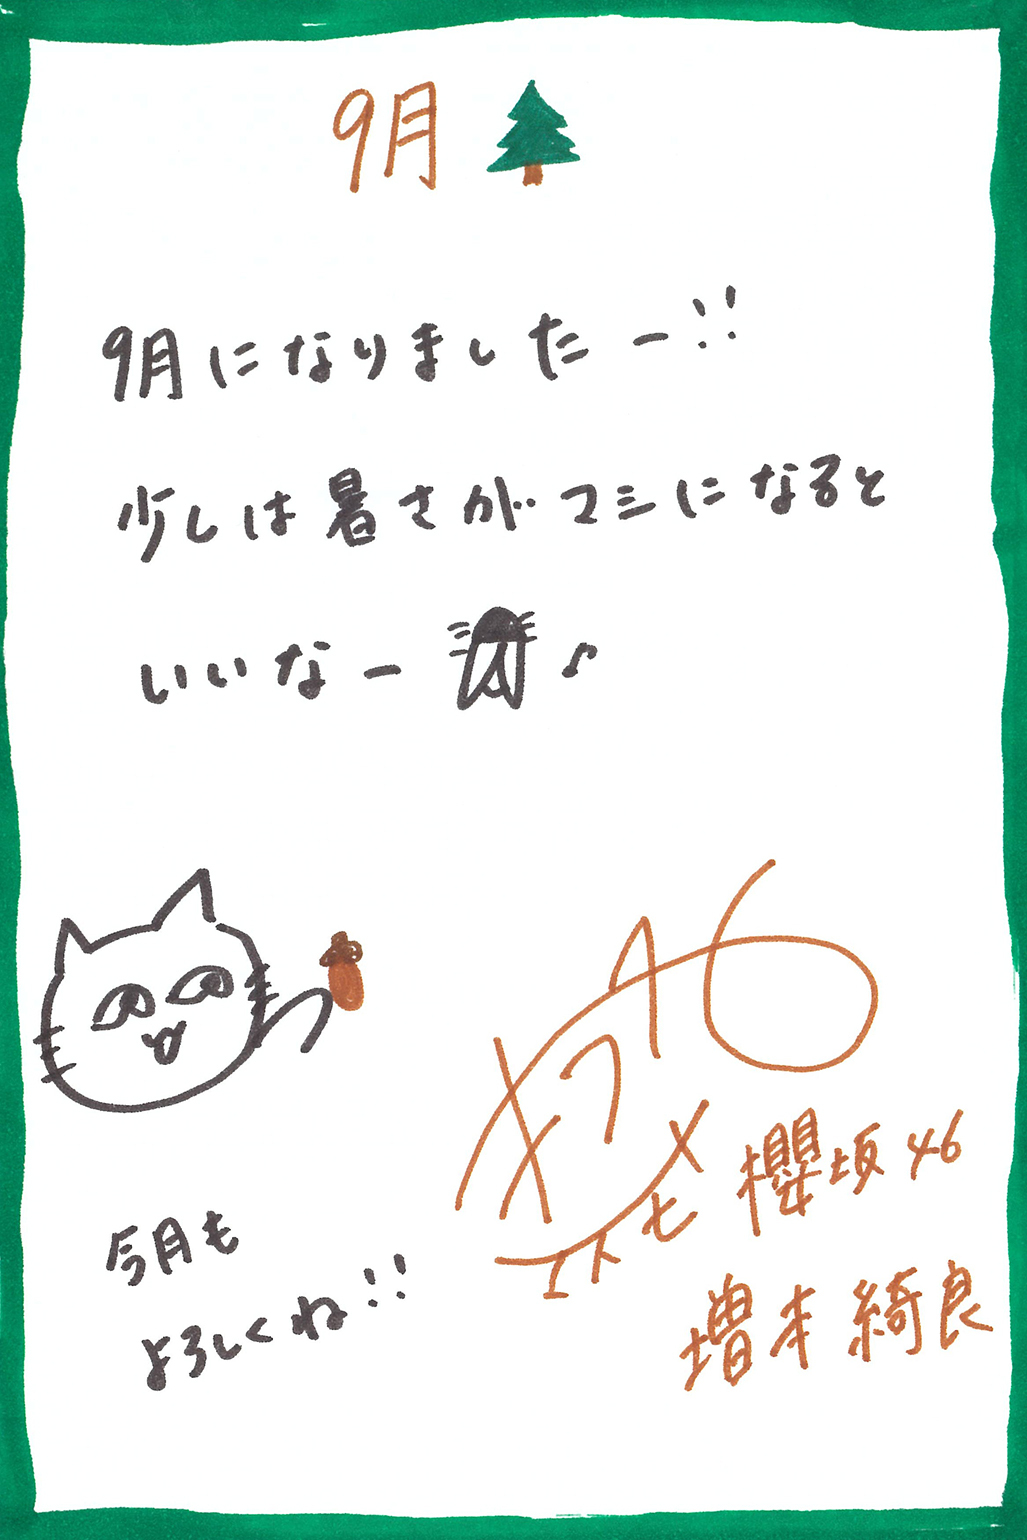 9月
9月になりましたー!!
少しは暑さがマシになると
いいなー♪
櫻坂46
増本綺良
今月も
よろしくね!!